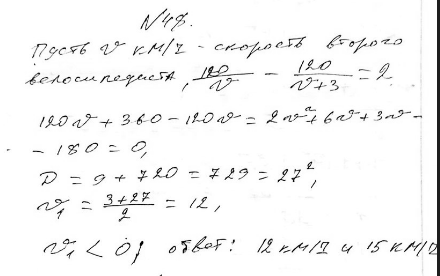 №48.
Пусть v км/ч - скорость второго
велосипедиста, 120/v - 120/(v+3) = 2
120v + 360 - 120v = 2v² + 6v + 3v -
- 180 = 0,
D = 9 + 720 = 729 = 27²,
v₁ = (3+27)/2 = 12,
v₁ < 0; ответ: 12 км/ч и 15 км/ч